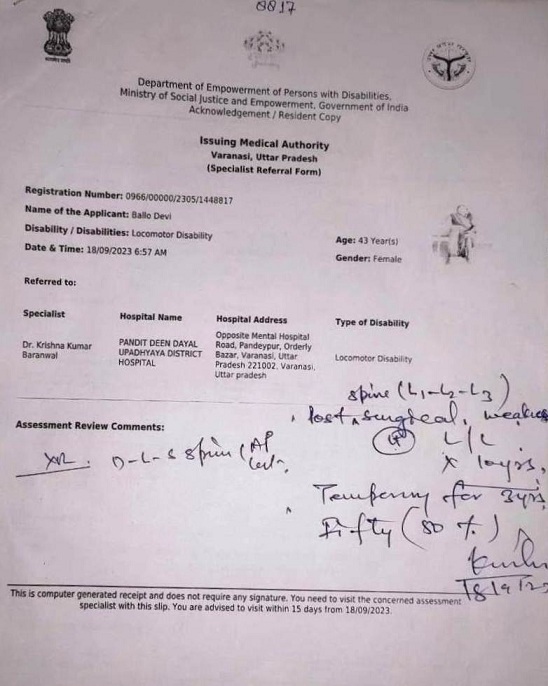 0817
Department of Empowerment of Persons with Disabilities,
Ministry of Social Justice and Empowerment, Government of India
Acknowledgement / Resident Copy
Issuing Medical Authority
Varanasi, Uttar Pradesh
(Specialist Referral Form)
Registration Number: 0966/00000/2305/1448817
Name of the Applicant: Ballo Devi
Disability / Disabilities: Locomotor Disability
Age: 43 Year(s)
Date & Time: 18/09/2023 6:57 AM
Gender: Female
Referred to:
Specialist Hospital Name Hospital Address Type of Disability
Dr. Krishna Kumar
Baranwal
PANDIT DEEN DAYAL
UPADHYAYA DISTRICT
HOSPITAL
Opposite Mental Hospital
Road, Pandeypur, Orderly
Bazar, Varanasi, Uttar
Pradesh 221002, Varanasi,
Uttar pradesh
Locomotor Disability
spine (L1-L2-L3)
Post surgical, weakness
L/L
x 10yrs,
Assessment Review Comments:
D-L-S spine (AP
Temporary for 3yrs
Fifty (50 %)
18/9/23
This is computer generated receipt and does not require any signature. You need to visit the concerned assessment
specialist with this slip. You are advised to visit within 15 days from 18/09/2023.